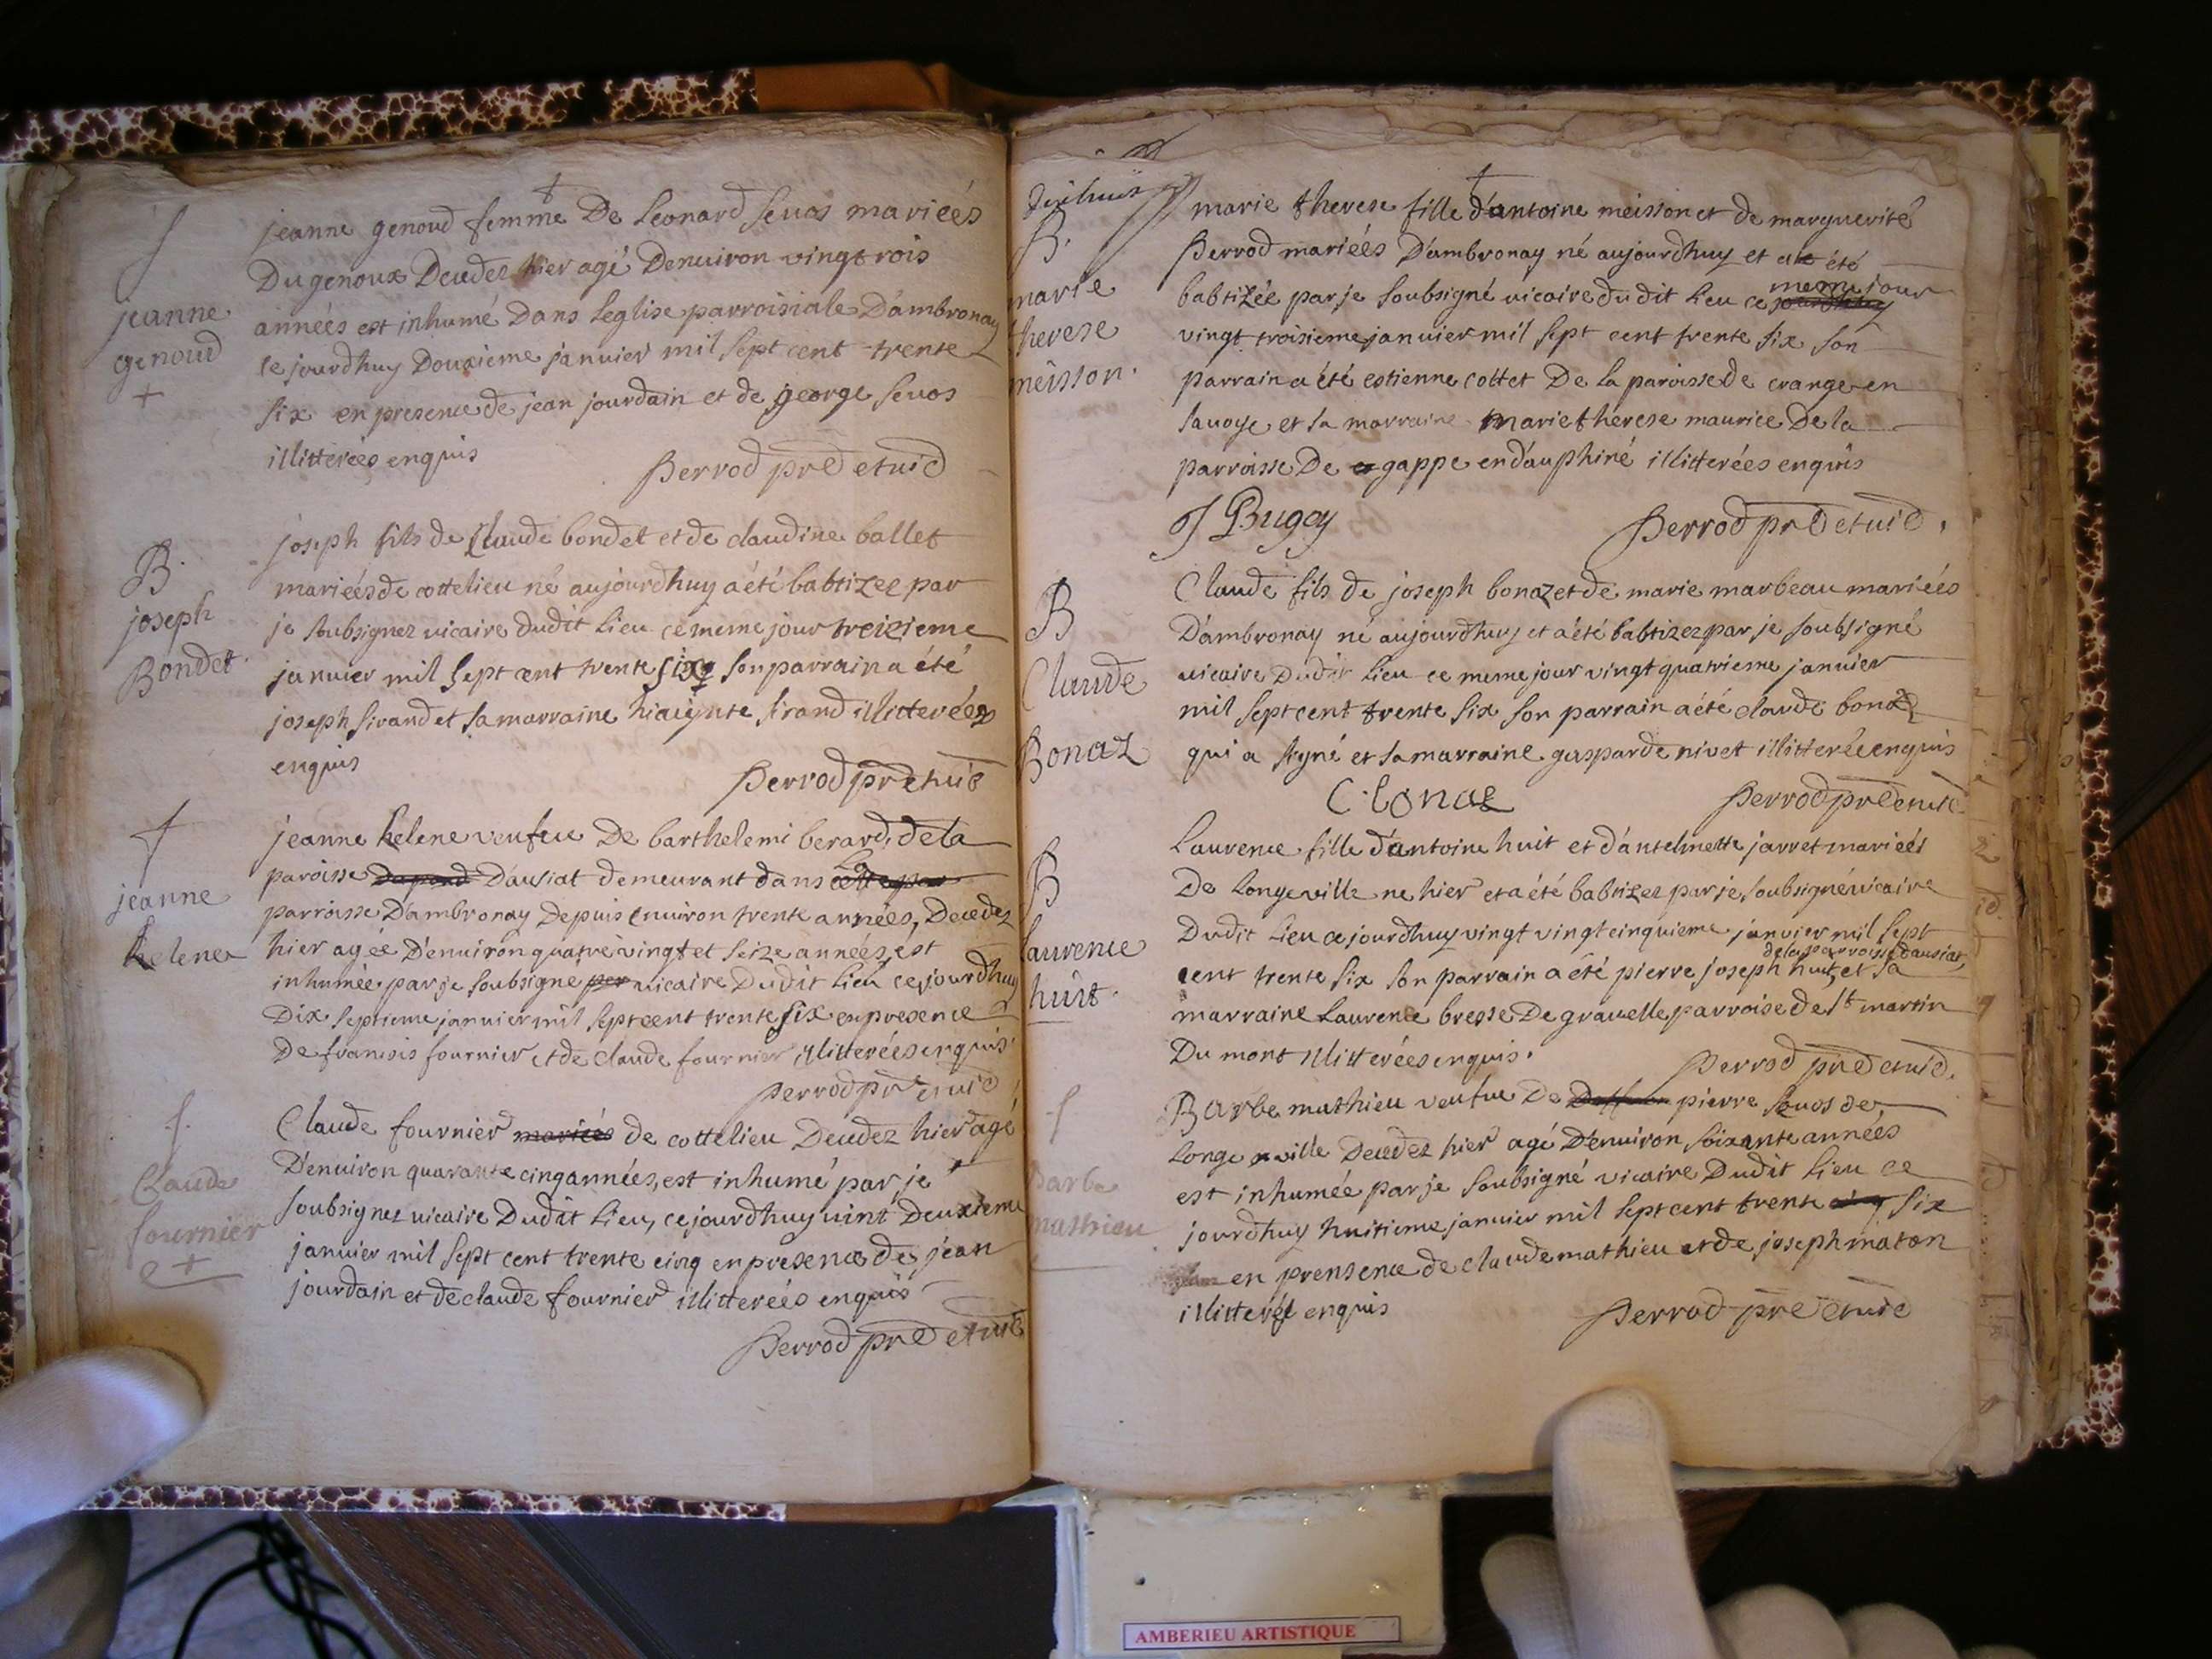 jeanne
genoud
+
jeanne genoud femme De Leonard Seuos mariéés
Du genoux Decedez hier agé Denuiron vingt rois
années est inhumé Dans Leglise parroisiale D'ambronay
ce jourdhuy Douzieme januier mil sept cent trente
six en presence de jean jourdain et de george Seuos
illitterées enquis
Perrod pre et uic
B.
joseph
Bondet.
joseph fils de Claude bondet et de claudine ballet
mariéés de cottelieu né aujourdhuy a été babtizee par
je soubsignez uicaire dudit Lieu ce meme jour treizieme
januier mil sept cent trente six son parrain a été
joseph sirand et sa marraine hiacynte sirand illitterées
enquis
Perrod pre et uic
jeanne
helene
jeanne helene veufue De barthelemi berard, de la
paroisse D'ausiat demeurant dans la
parroisse D'ambronay Depuis enuiron trente années, Decedez
hier agée D'enuiron quatre vingt et seize années, est
inhumée par je soubsigné per uicaire Dudit Lieu cejourdhuy
Dix septieme januier mil sept cent trente six en presence
De francois fournier et de claude fournier illitterées enquis
Perrod pre et uic
Claude
fournier
+
Claude fournier mariéés de cottelieu Decedez hier agé
D'enuiron quarante cinq années, est inhumé par je
soubsignez uicaire Dudit Lieu, cejourdhuy vint Deuxieme
januier mil sept cent trente cinq en presence de jean
jourdain et de claude fournier illitterées enquis
Perrod pre et uic
B.
marie
therese
meisson.
marie therese fille d'antoine meisson et de marguerite
Perrod mariéés D'ambronay né aujourdhuy et a été
babtizée par je soubsigné uicaire dudit Lieu ce jourdhuy meme jour
vingt troisieme januier mil sept cent trente six son
parrain a été estienne cottet De la paroisse de crange en
sauoye et sa marraine marie therese maurice De la
parroisse De gappe en dauphiné illitterées enquis
J Bugey
Perrod pre et uic.
B
Claude
Bonaz
Claude fils de joseph bonaz et de marie marbeau mariéés
D'ambronay né aujourdhuy et a été babtizez par je soubsigné
uicaire Dudit Lieu ce meme jour vingt quatrieme januier
mil sept cent trente six son parrain a été claude bonaz
qui a signé et sa marraine gasparde nivet illitterée enquis
C. bonaz
Perrod pre et uic
B
laurence
huit.
Laurence fille d'antoine huit et d'antelmette jarret mariéés
De Longeville ne hier et a été babtizez par je soubsigné uicaire
Dudit Lieu cejourdhuy vingt vingt cinquieme januier mil sept
de la parroisse dausiat
cent trente six son parrain a été pierre joseph huit, et sa
marraine Laurence bresse De grauelle parroise de st martin
Du mont illitterées enquis.
Perrod pre et uic.
barbe
mathieu
Barbe mathieu veufue De pierre Seuos de
Longeville Decedez hier agé D'enuiron soixante années
est inhumée par je soubsigné vicaire Dudit Lieu ce
jourdhuy huitieme januier mil sept cent trente cinq six
en prensence de claude mathieu et de joseph maton
illitteré enquis
Perrod pre et uic
AMBERIEU ARTISTIQUE